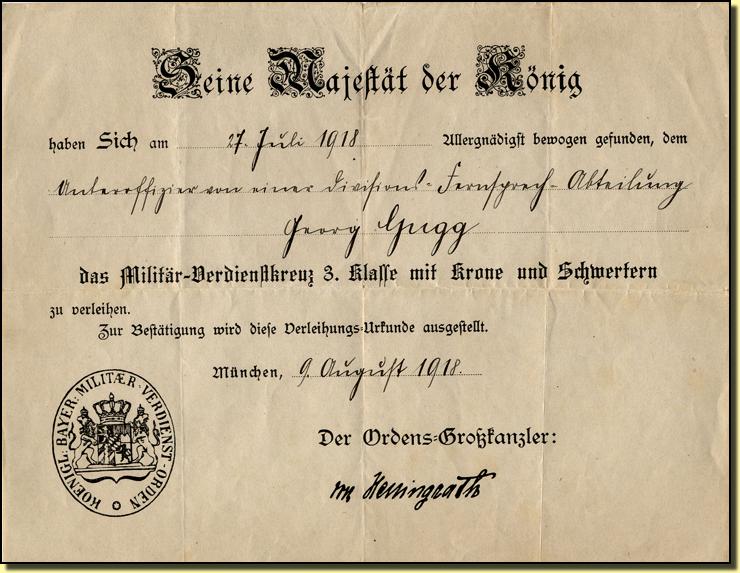 Seine Majestät der König
haben Sich am 27. Juli 1918 Allergnädigst bewogen gefunden, dem
Unteroffizier von einer Divisions-Fernsprech-Abteilung
Georg Gugg
das Militär-Verdienstkreuz 3. Klasse mit Krone und Schwertern
zu verleihen.
Zur Bestätigung wird diese Verleihungs-Urkunde ausgestellt.
München, 9. August 1918.
KOENIGL: BAYER: MILITÆR-VERDIENST-ORDEN
Der Ordens-Großkanzler:
von Hellingrath